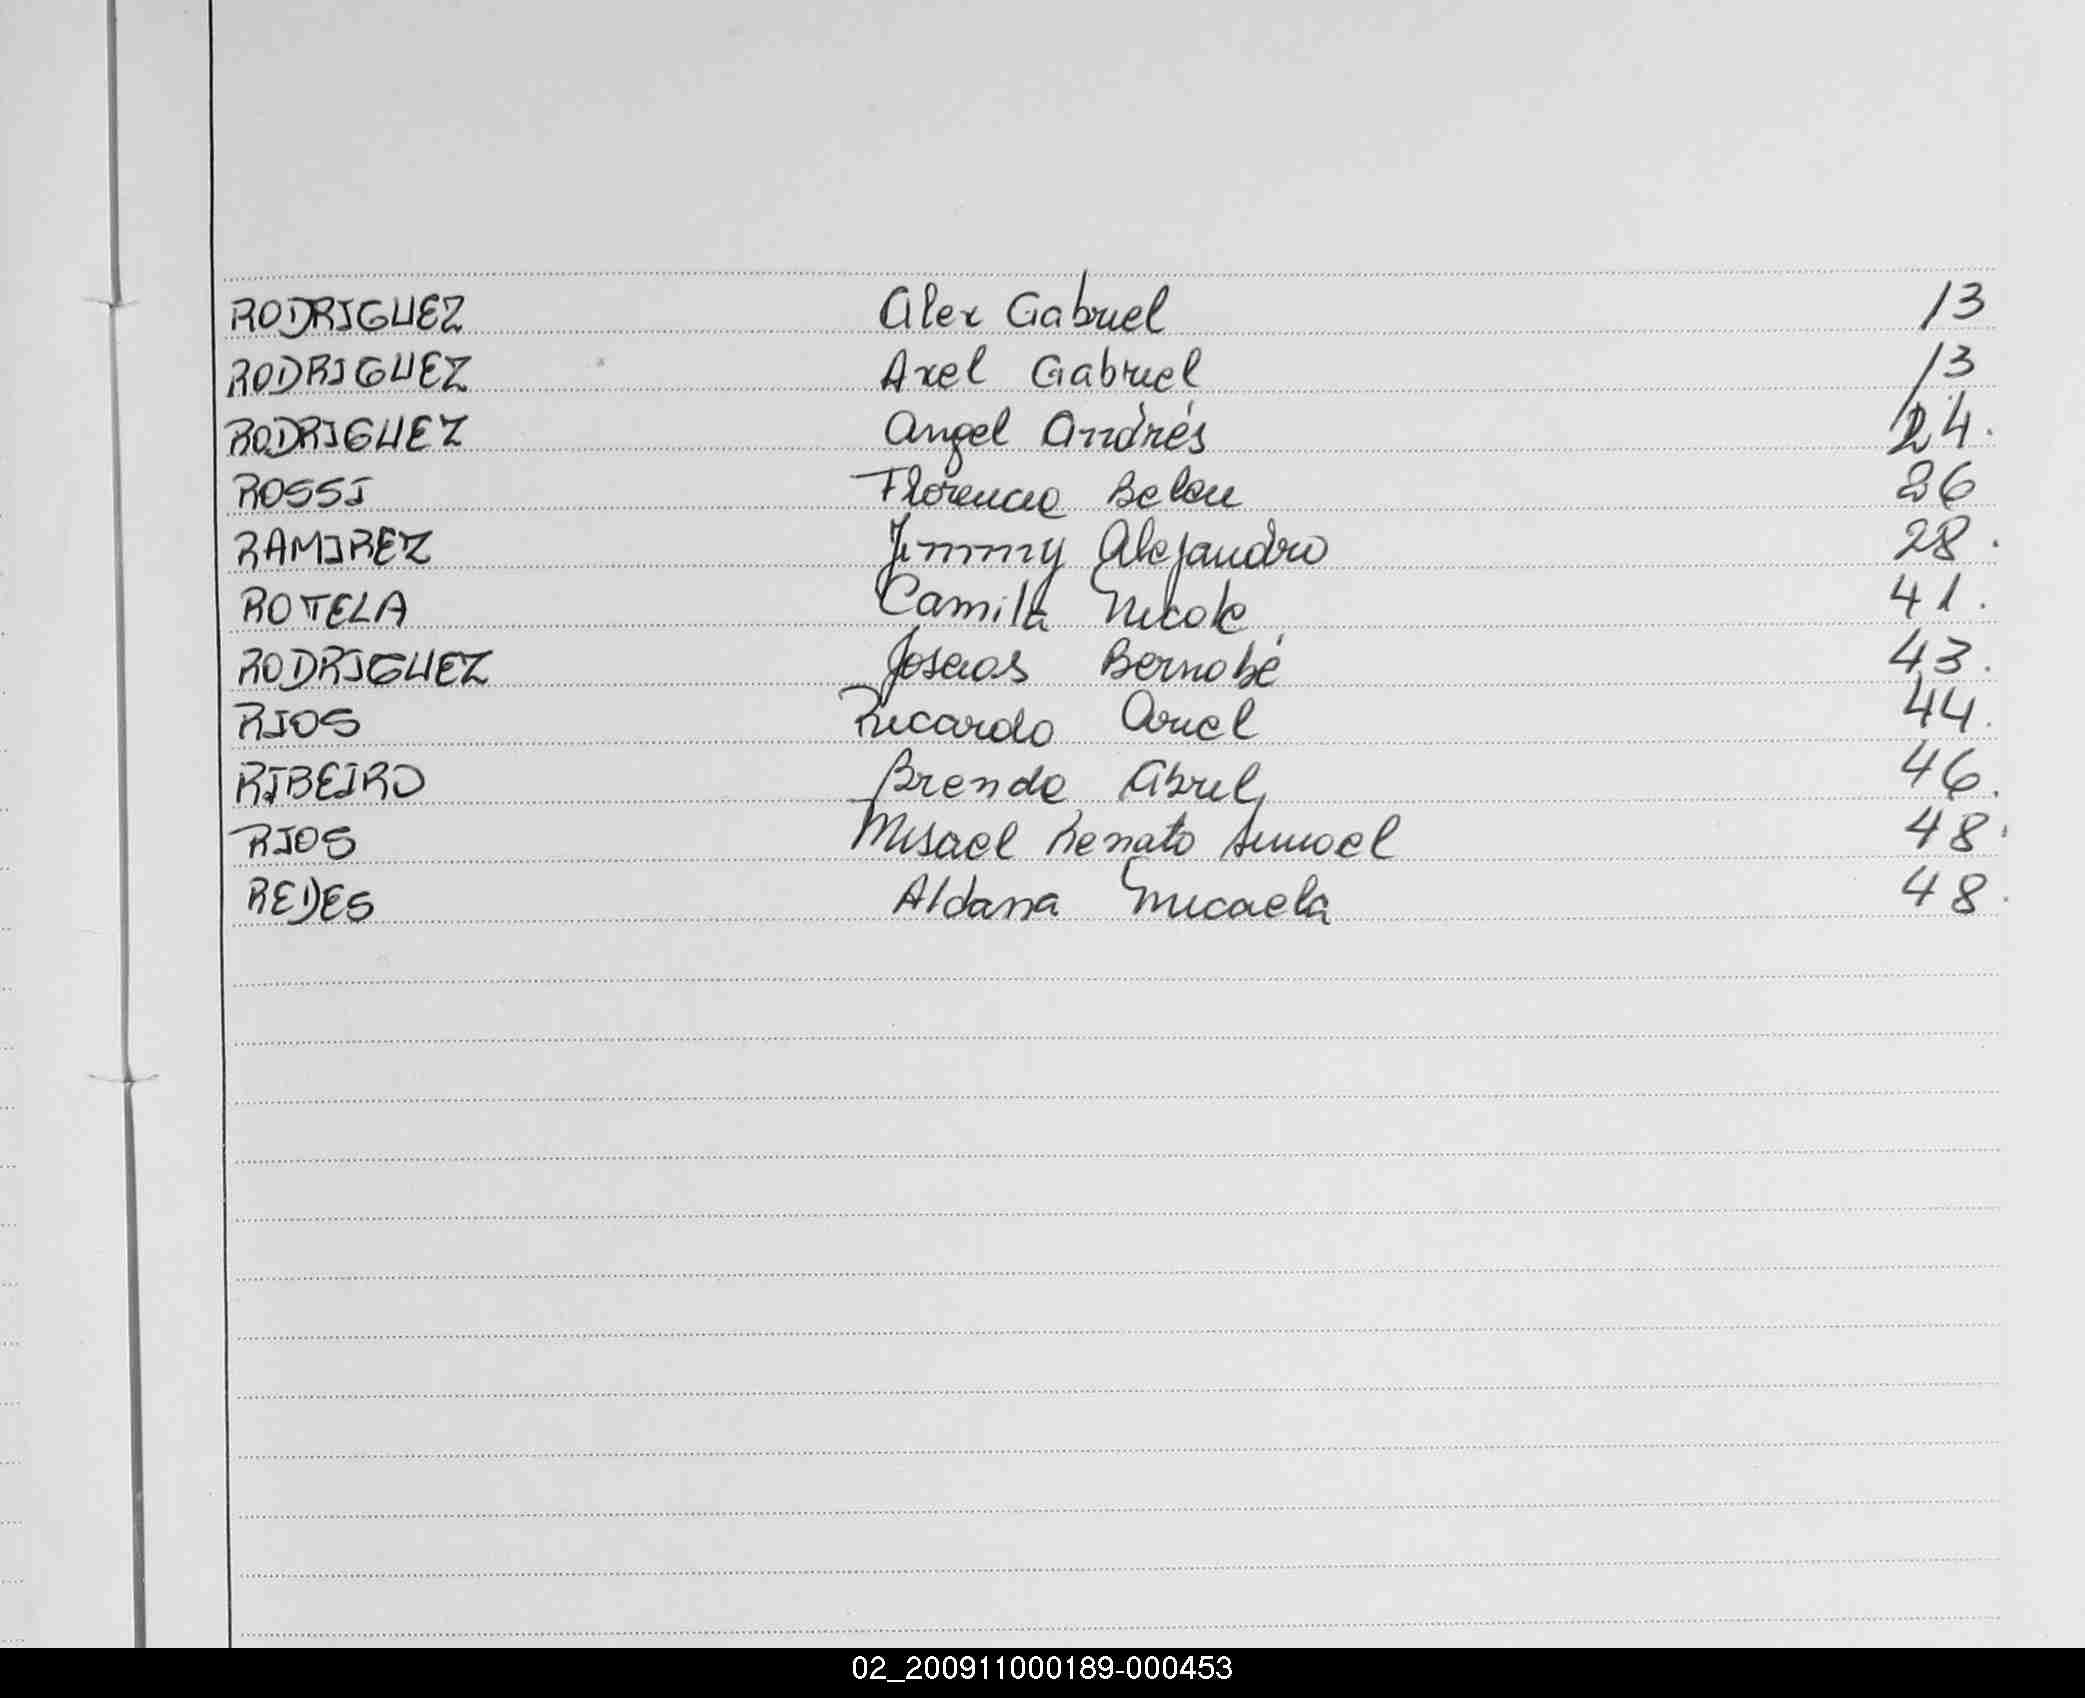 RODRIGUEZ Alex Gabriel 13
RODRIGUEZ Axel Gabriel 13
RODRIGUEZ Angel Andrés 24.
ROSSI Florencia Belen 26
RAMIREZ Jimmy Alejandro 28.
ROTELA Camila Nicole 41.
RODRIGUEZ Joseias Bernabé 43.
RIOS Ricardo Ariel 44.
RIBEIRO Brenda Abril 46.
RIOS Misael Renato 48.
REDES Aldana Micaela 48.
02_200911000189-000453